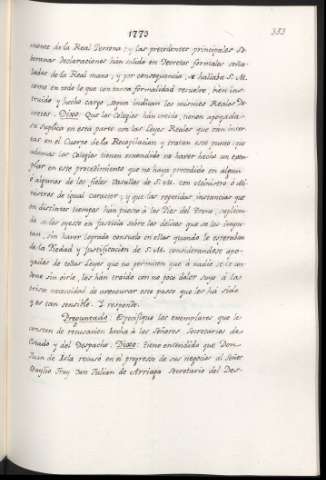 1773
383
mente de la Real Persona: y las precedentes principales So-
beranas Declaraciones han salido en Decretos formales seña-
lados de la Real mano; y por consequencia, se hallaba S. M.
como en todo lo que con tanta formalidad resuelve, bien ins-
truido y hecho cargo, segun indican los mismos Reales De-
cretos. Dixo: Que los Colegios han creido, tienen apoyada
su suplica en esta parte con las Leyes Reales que corren inser-
tas en el Cuerpo de la Recopilacion y tratan este punto: que
ademas los Colegios tienen entendido no haver hecho un exem-
plar en este procedimiento que no haya precedido en alguno
ó algunos de los fieles Vasallos de S. M. con Ministro ó Mi-
nistros de igual caracter; y que las repetidas instancias que
en distintos tiempos han puesto á los Pies del Trono, suplican-
do se les oyesse en Justicia sobre los delitos que se les impu-
tan, sin haver logrado consuelo en ellas quando le esperaban
de la Piedad y Justificacion de S. M. considerandose apo-
yados de todas Leyes que no permiten que á nadie se le con-
dene sin oirle, les han traido con no poco dolor suyo á la
precisa necesidad de evacuar este passo que les ha sido
y es tan sensible. Y responde.
Preguntado: Especifique los exemplares que le
consten de recusacion hecha á los Señores Secretarios de
Estado y del Despacho: Dixo: tiene entendido que Don
Juan de Isla recusó en el progreso de sus negocios al Señor
Baylio Frey Don Julian de Arriaga Secretario del Des-